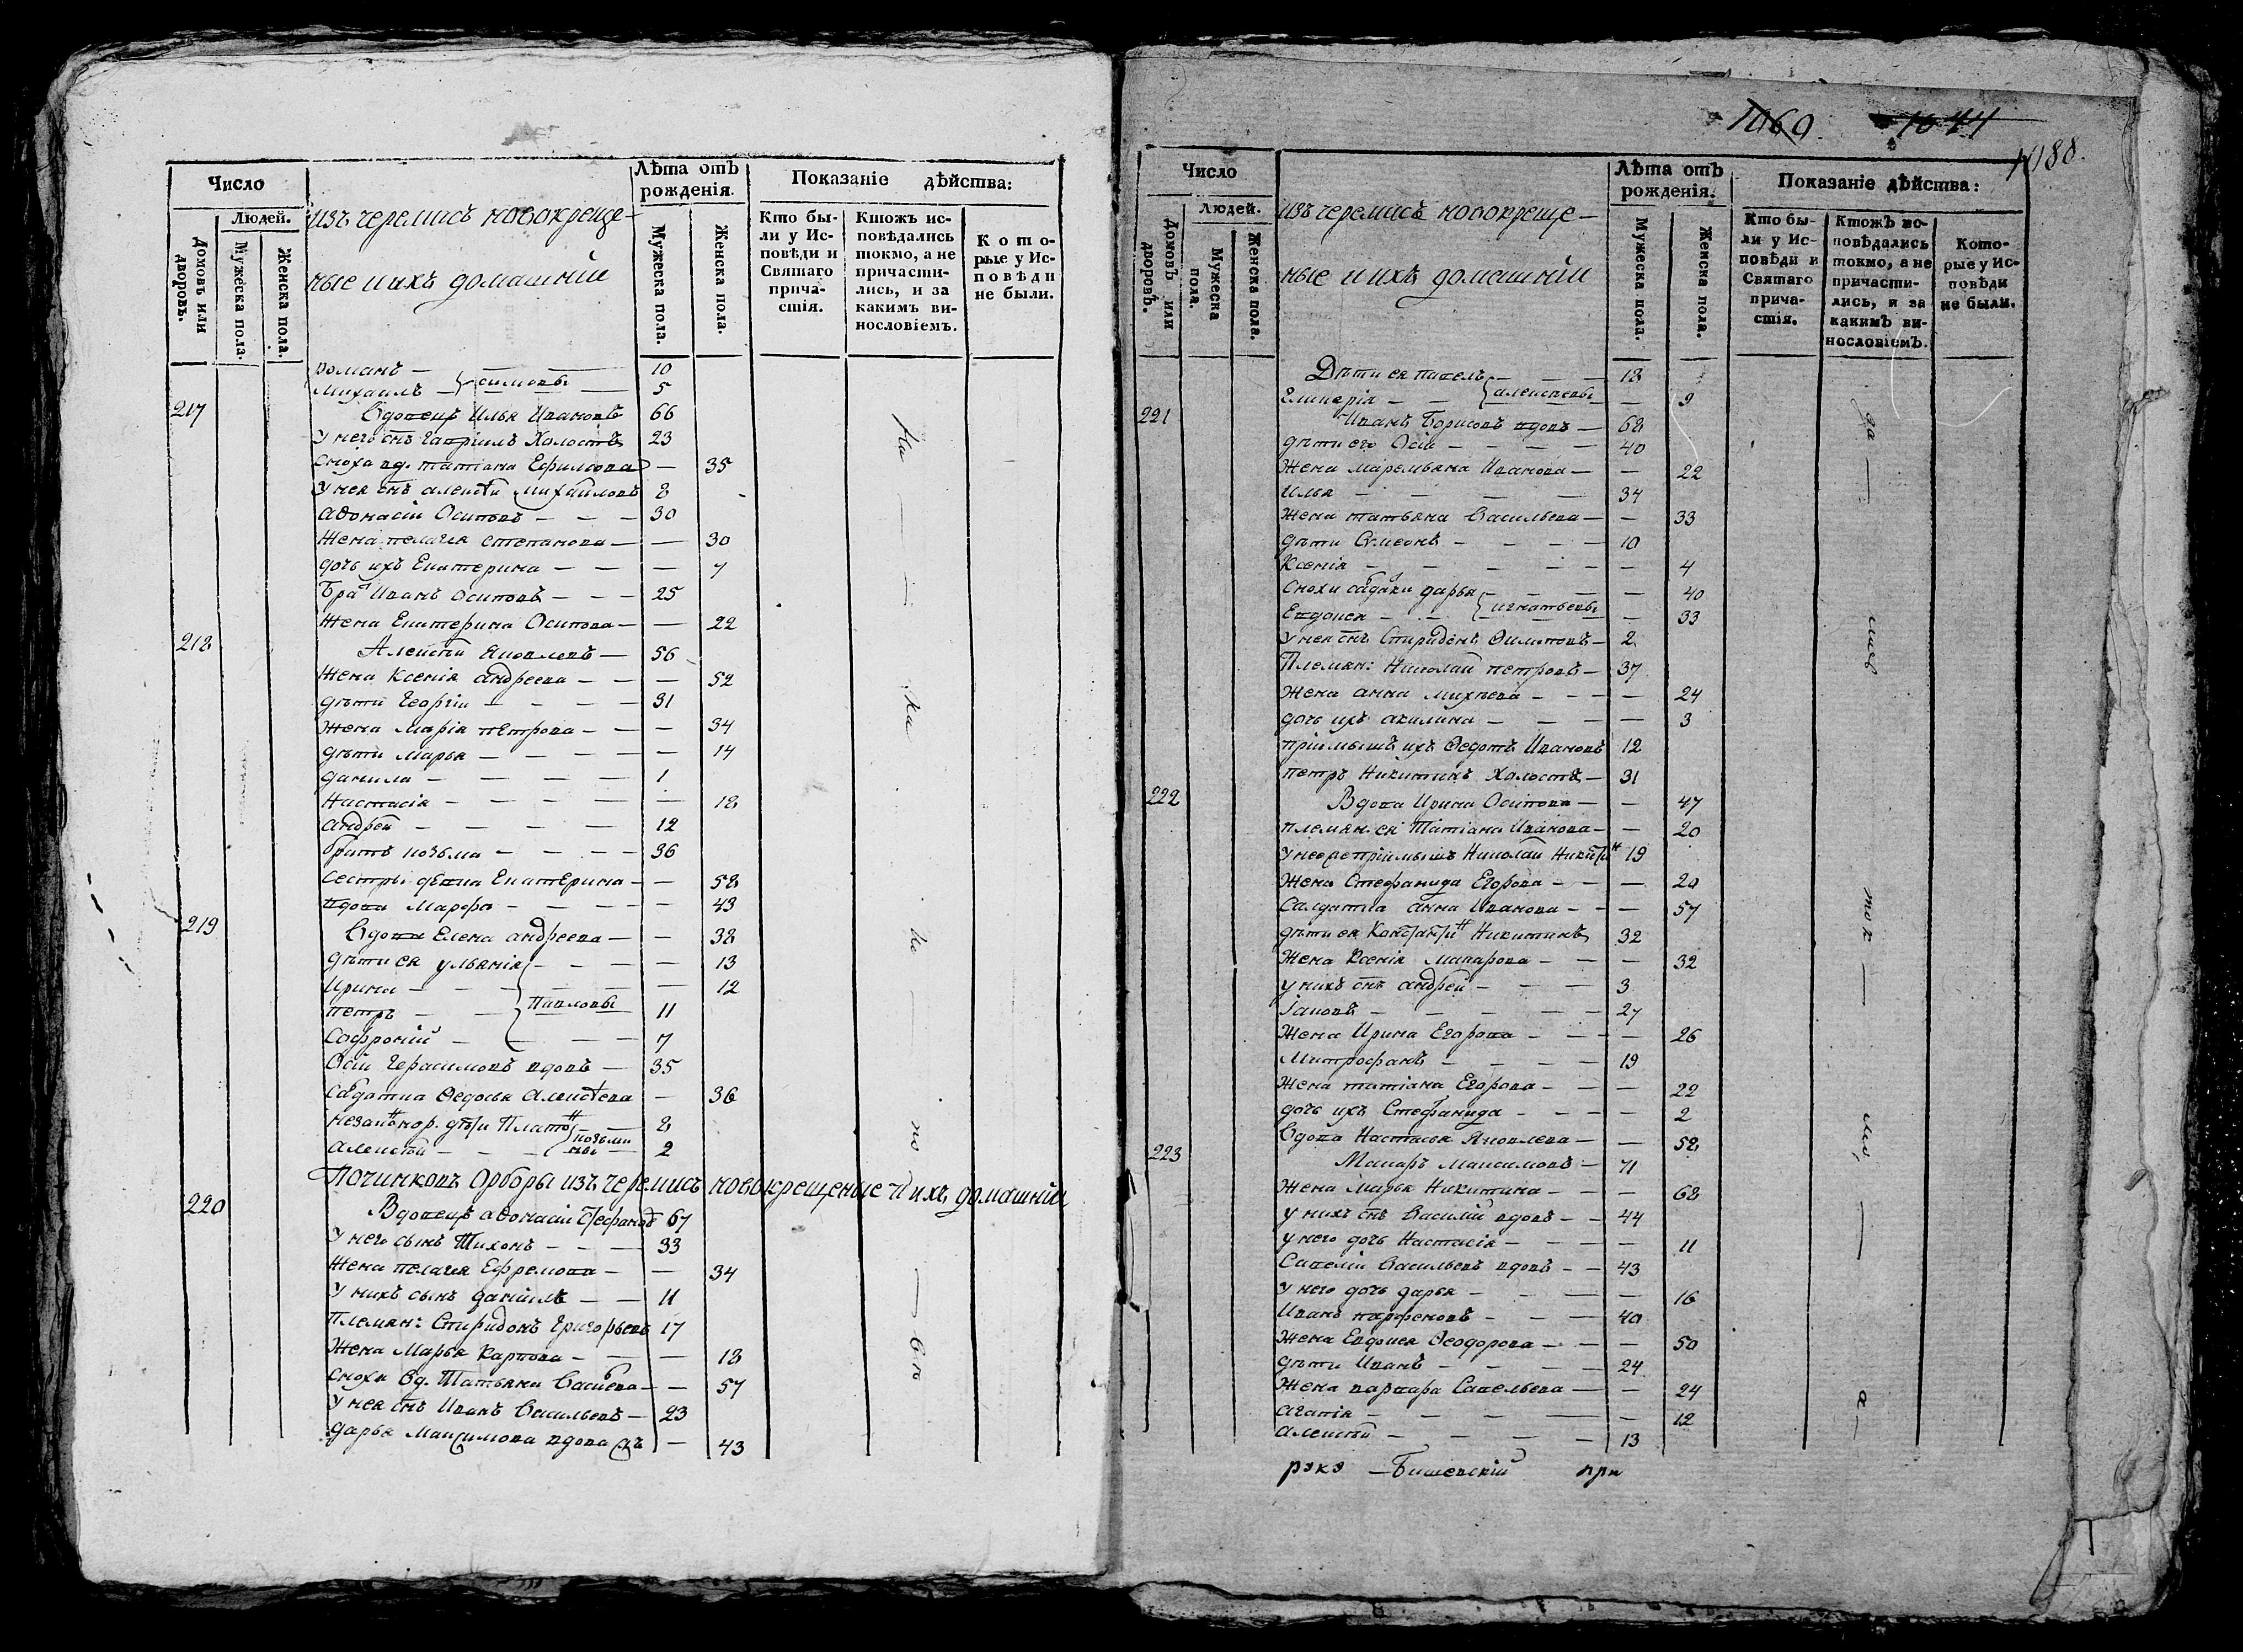 Число
Людей.
Домовъ или дворовъ.
Мужеска пола.
Женска пола.
изъ черемисъ новокреще-
ные и ихъ домашнiи
Лѣта отъ рожденiя.
Мужеска пола.
Женска пола.
Показанiе дѣйства:
Кто бы-
ли у Ис-
повѣди и
Святаго
прича-
стiя.
Ктожъ ис-
повѣдались
токмо, а не
причасти-
лись, и за
какимъ ви-
нословiемъ.
Кото-
рые у Ис-
повѣди
не были.
романъ — 10
Михаилъ — 5
217 Вдовецъ Илья Ивановъ 66
У него снъ Гаврiилъ Холостъ 23
Сноха вд. татiана Ефимова — 35
У нея снъ алексѣй михайловъ 8
Афонасiи Осиповъ — 30
Жена пелагея степанова — 30
дочь ихъ Екатерина — 7
Братъ Иванъ Осиповъ — 25
Жена Екатерина Осипова — 22
218 Алексѣй Яковлевъ — 56
Жена Ксенiя андреева — 52
дѣти Георгiи — 31
Жена Марiя петрова — 34
дѣти марья — 14
данила — 1
Настасiя — 18
андрей — 12
братъ козьма — 36
сестры девка Екатерина — 58
вдова Марфа — 43
219 Вдова Елена андреева — 38
дѣти ея ульянiя — 13
Ирина — 12
петръ — Павловы 11
Софронiй — 7
Осiи Герасимовъ вдовъ — 35
Салдатка Федосья Алексѣева — 36
незаконнор. дѣти Платонъ — 8
Алексѣй — козьмины — 2
Починковъ Орборы изъ черемисъ новокрещеные и ихъ домашнiи
220 Вдовецъ афонасiи Стефановъ 67
У него сынъ Тихонъ — 33
Жена пелагея Ефремова — 34
У нихъ сынъ данiилъ — 11
Племян: Спиридонъ Григорьевъ 17
Жена Марья Карпова — 18
Сноха Вд. Татьяна Васильева — 57
У нея снъ Иванъ Васильевъ — 23
дарья Максимова вдова — 43
1069 1044
1088.
Число
Людей.
Домовъ или дворовъ.
Мужеска пола.
Женска пола.
изъ черемисъ новокреще-
ные и ихъ домашнiи
Лѣта отъ рожденiя.
Мужеска пола.
Женска пола.
Показанiе дѣйства:
Кто бы-
ли у Ис-
повѣди и
Святаго
прича-
стiя.
Ктожъ ис-
повѣдались
токмо, а не
причасти-
лись, и за
какимъ ви-
нословiемъ.
Кото-
рые у Ис-
повѣди
не были.
Дѣти ея павелъ — 18
алексѣевы — 9
221 Иванъ Борисовъ вдовъ — 68
дѣти его Осiи — 40
Жена маремьяна Иванова — 22
Илья — 34
Жена татьяна Васильева — 33
дѣти Симеонъ — 10
Ксенiя — 4
Снохи салдатки дарья — 40
Евдокея — игнатьевы — 33
У нея снъ Спиридонъ Филиповъ — 2
Племян: Николай петровъ — 37
Жена анна михѣева — 24
дочь ихъ акилина — 3
прiимышъ ихъ Федотъ Ивановъ 12
петръ Никитинъ Холостъ — 31
222 Вдова Ирина Осипова — 47
племян. ея Татiана Иванова — 20
У нее прiимышъ Николай Никитинъ 19
Жена Стефанида Егорова — 20
Салдатка анна Иванова — 57
дѣти ея Константинъ Никитинъ 32
Жена Ксенiя Макарова — 32
у нихъ снъ андрей — 3
Iаковъ — 27
Жена Ирина Егорова — 26
Митрофанъ — 19
Жена татiана Егорова — 22
дочь ихъ Стефанида — 2
Вдова Настасья Яковлева — 58
223 Макаръ Максимовъ — 71
Жена Марья Никитина — 68
у нихъ снъ Василiй вдовъ — 44
у него дочь Настасiя — 11
Савелiй Васильевъ вдовъ — 43
У него дочь дарья — 16
Иванъ парфеновъ — 40
Жена Евдокея Феодорова — 50
дѣти Иванъ — 24
Жена варвара Савельева — 24
агапiя — 12
Алексѣй — 13
Бишевскiй при